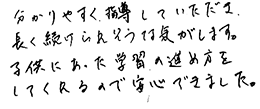 分かりやすく、指導していただき、
長く続けられそうな気がします。
子供にあった学習の進め方を
してくれるので安心できました。